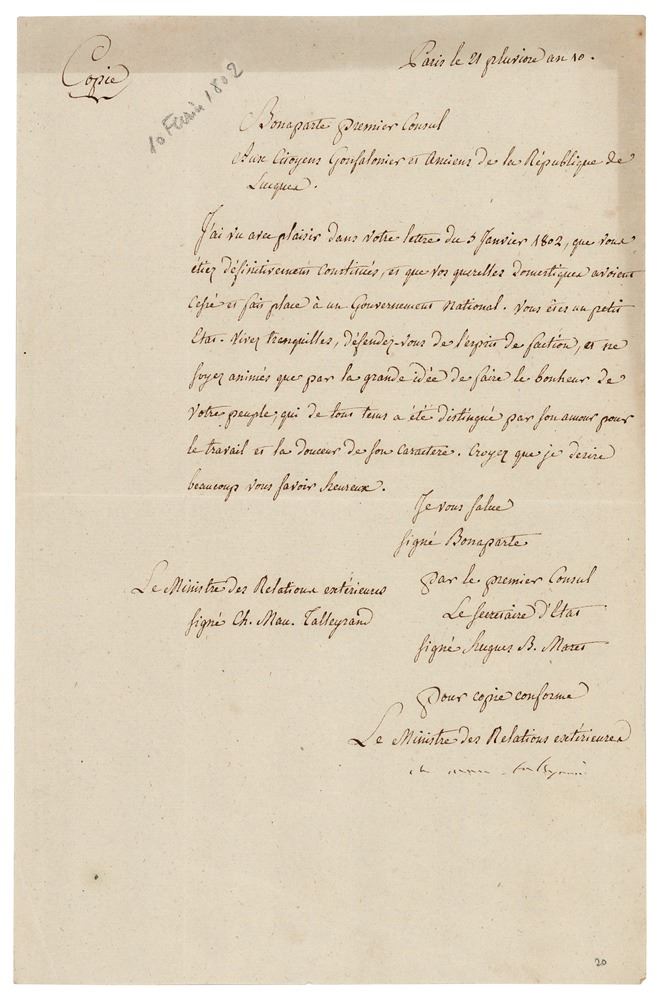 Copie
Paris le 21 pluviose an 10.
10 Février 1802
Bonaparte premier Consul
Aux Citoyens Gonfalonier et Anciens de la République de
Lucques.
J'ai vu avec plaisir dans votre lettre du 5 Janvier 1802, que vous
étiez définitivement constitués, et que vos querelles domestiques avoient
cessé et fait place à un Gouvernement National. Vous êtes un petit
Etat. Vivez tranquilles, défendez-vous de l'esprit de faction, et ne
soyez animés que par la grande idée de faire le bonheur de
votre peuple, qui de tous tems a été distingué par son amour pour
le travail et la douceur de son caractere. Croyez que je desire
beaucoup vous savoir heureux.
Je vous salue
signé Bonaparte
par le premier Consul
Le Secretaire d'Etat
signé hugues B. Maret
Le Ministre des Relations extérieures
signé Ch. Mau. Talleyrand
pour copie conforme
Le Ministre des Relations extérieures
ch mau talleyrand
20